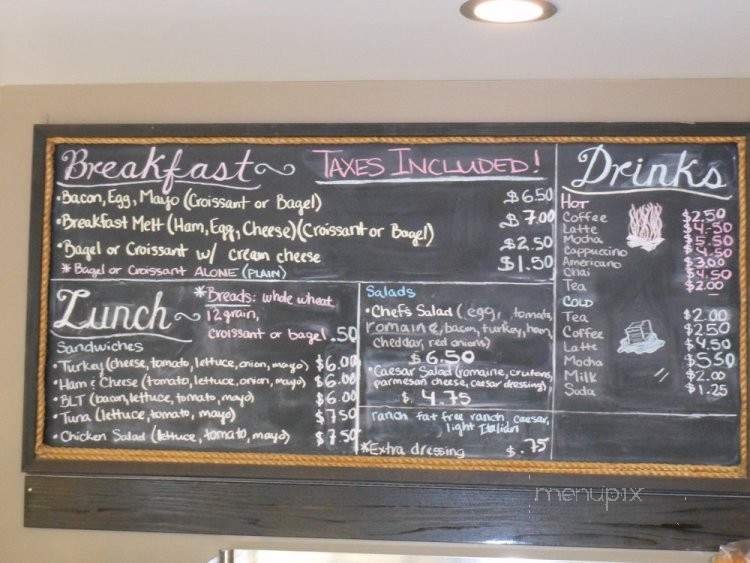 Breakfast TAXES INCLUDED!
•Bacon, Egg, Mayo (Croissant or Bagel) $6.50
•Breakfast Melt (Ham, Egg, Cheese)(Croissant or Bagel) $7.00
•Bagel or Croissant w/ cream cheese $2.50
*Bagel or Croissant ALONE (PLAIN) $1.50
Lunch
*Breads: whole wheat
12 grain,
croissant or bagel .50
Sandwiches
•Turkey (cheese, tomato, lettuce, onion, mayo) $6.00
•Ham & Cheese (tomato, lettuce, onion, mayo) $6.00
•BLT (bacon, lettuce, tomato, mayo) $6.00
•Tuna (lettuce, tomato, mayo) $7.50
•Chicken Salad (lettuce, tomato, mayo) $7.50
Salads
•Chef's Salad (egg, tomato,
romaine, bacon, turkey, ham,
cheddar, red onions)
$6.50
•Caesar Salad (romaine, crutons,
parmesan cheese, caesar dressing)
$4.75
ranch, fat free ranch, caesar,
light Italian
*Extra dressing $.75
Drinks
HOT
Coffee $2.50
Latte $4.50
Mocha $5.50
Cappuccino $4.50
Americano $3.00
Chai $4.50
Tea $2.00
COLD
Tea $2.00
Coffee $2.50
Latte $4.50
Mocha $5.50
Milk $2.00
Soda $1.25
menupix